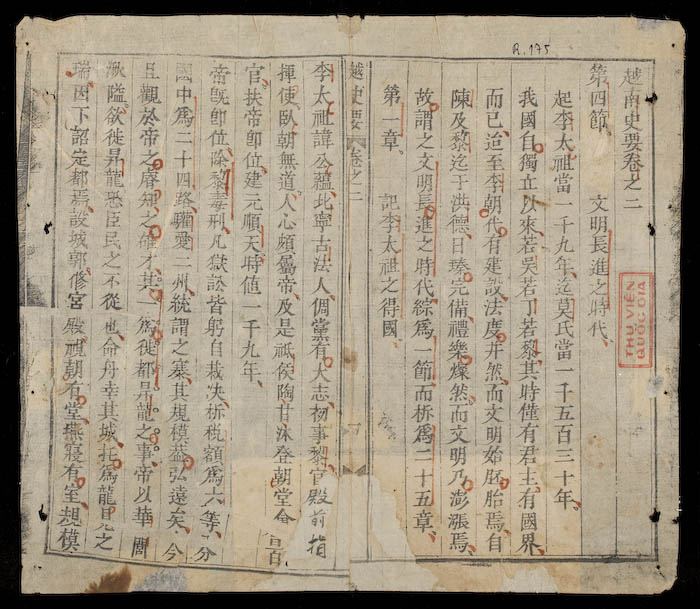 R.175
越南史要卷之二
第四節 文明長進之時代、
起李太祖當一千九年、迄莫氏當一千五百三十年、
我國自獨立以來、若吳若丁若黎、其時僅有君主、有國界、
而已、迨至李朝、代有建設、法度井然、而文明始胚胎焉、自
陳及黎、迄于洪德、日臻完備、禮樂燦然、而文明乃澎漲焉、
故謂之文明長進之時代、綜爲一節、而析爲二十五章、
第一章、 記李太祖之得國、
越史要 卷之二
李太祖諱公蘊、北寧古法人、倜儻有大志、初事黎、官殿前指
揮使、臥朝無道、人心頗屬帝、及是祗侯陶甘沐登朝堂、會百
官、扶帝卽位、建元順天、時値一千九年、
帝旣卽位、除黎毒刑、凡獄訟皆躬自裁決、析稅額爲六等、分
國中爲二十四路、驩愛二州統謂之寨、其規模葢弘遠矣、今
且觀於帝之睿知之雄才、其一爲徙都昇龍之事、帝以華閭
湫隘、欲徙昇龍、恐臣民之不從也、命舟幸其城、托爲龍見之
瑞、因下詔定都焉、設城郭、修宮殿、視朝有堂、燕寢有室、規模
THƯ VIỆN
QUỐC GIA